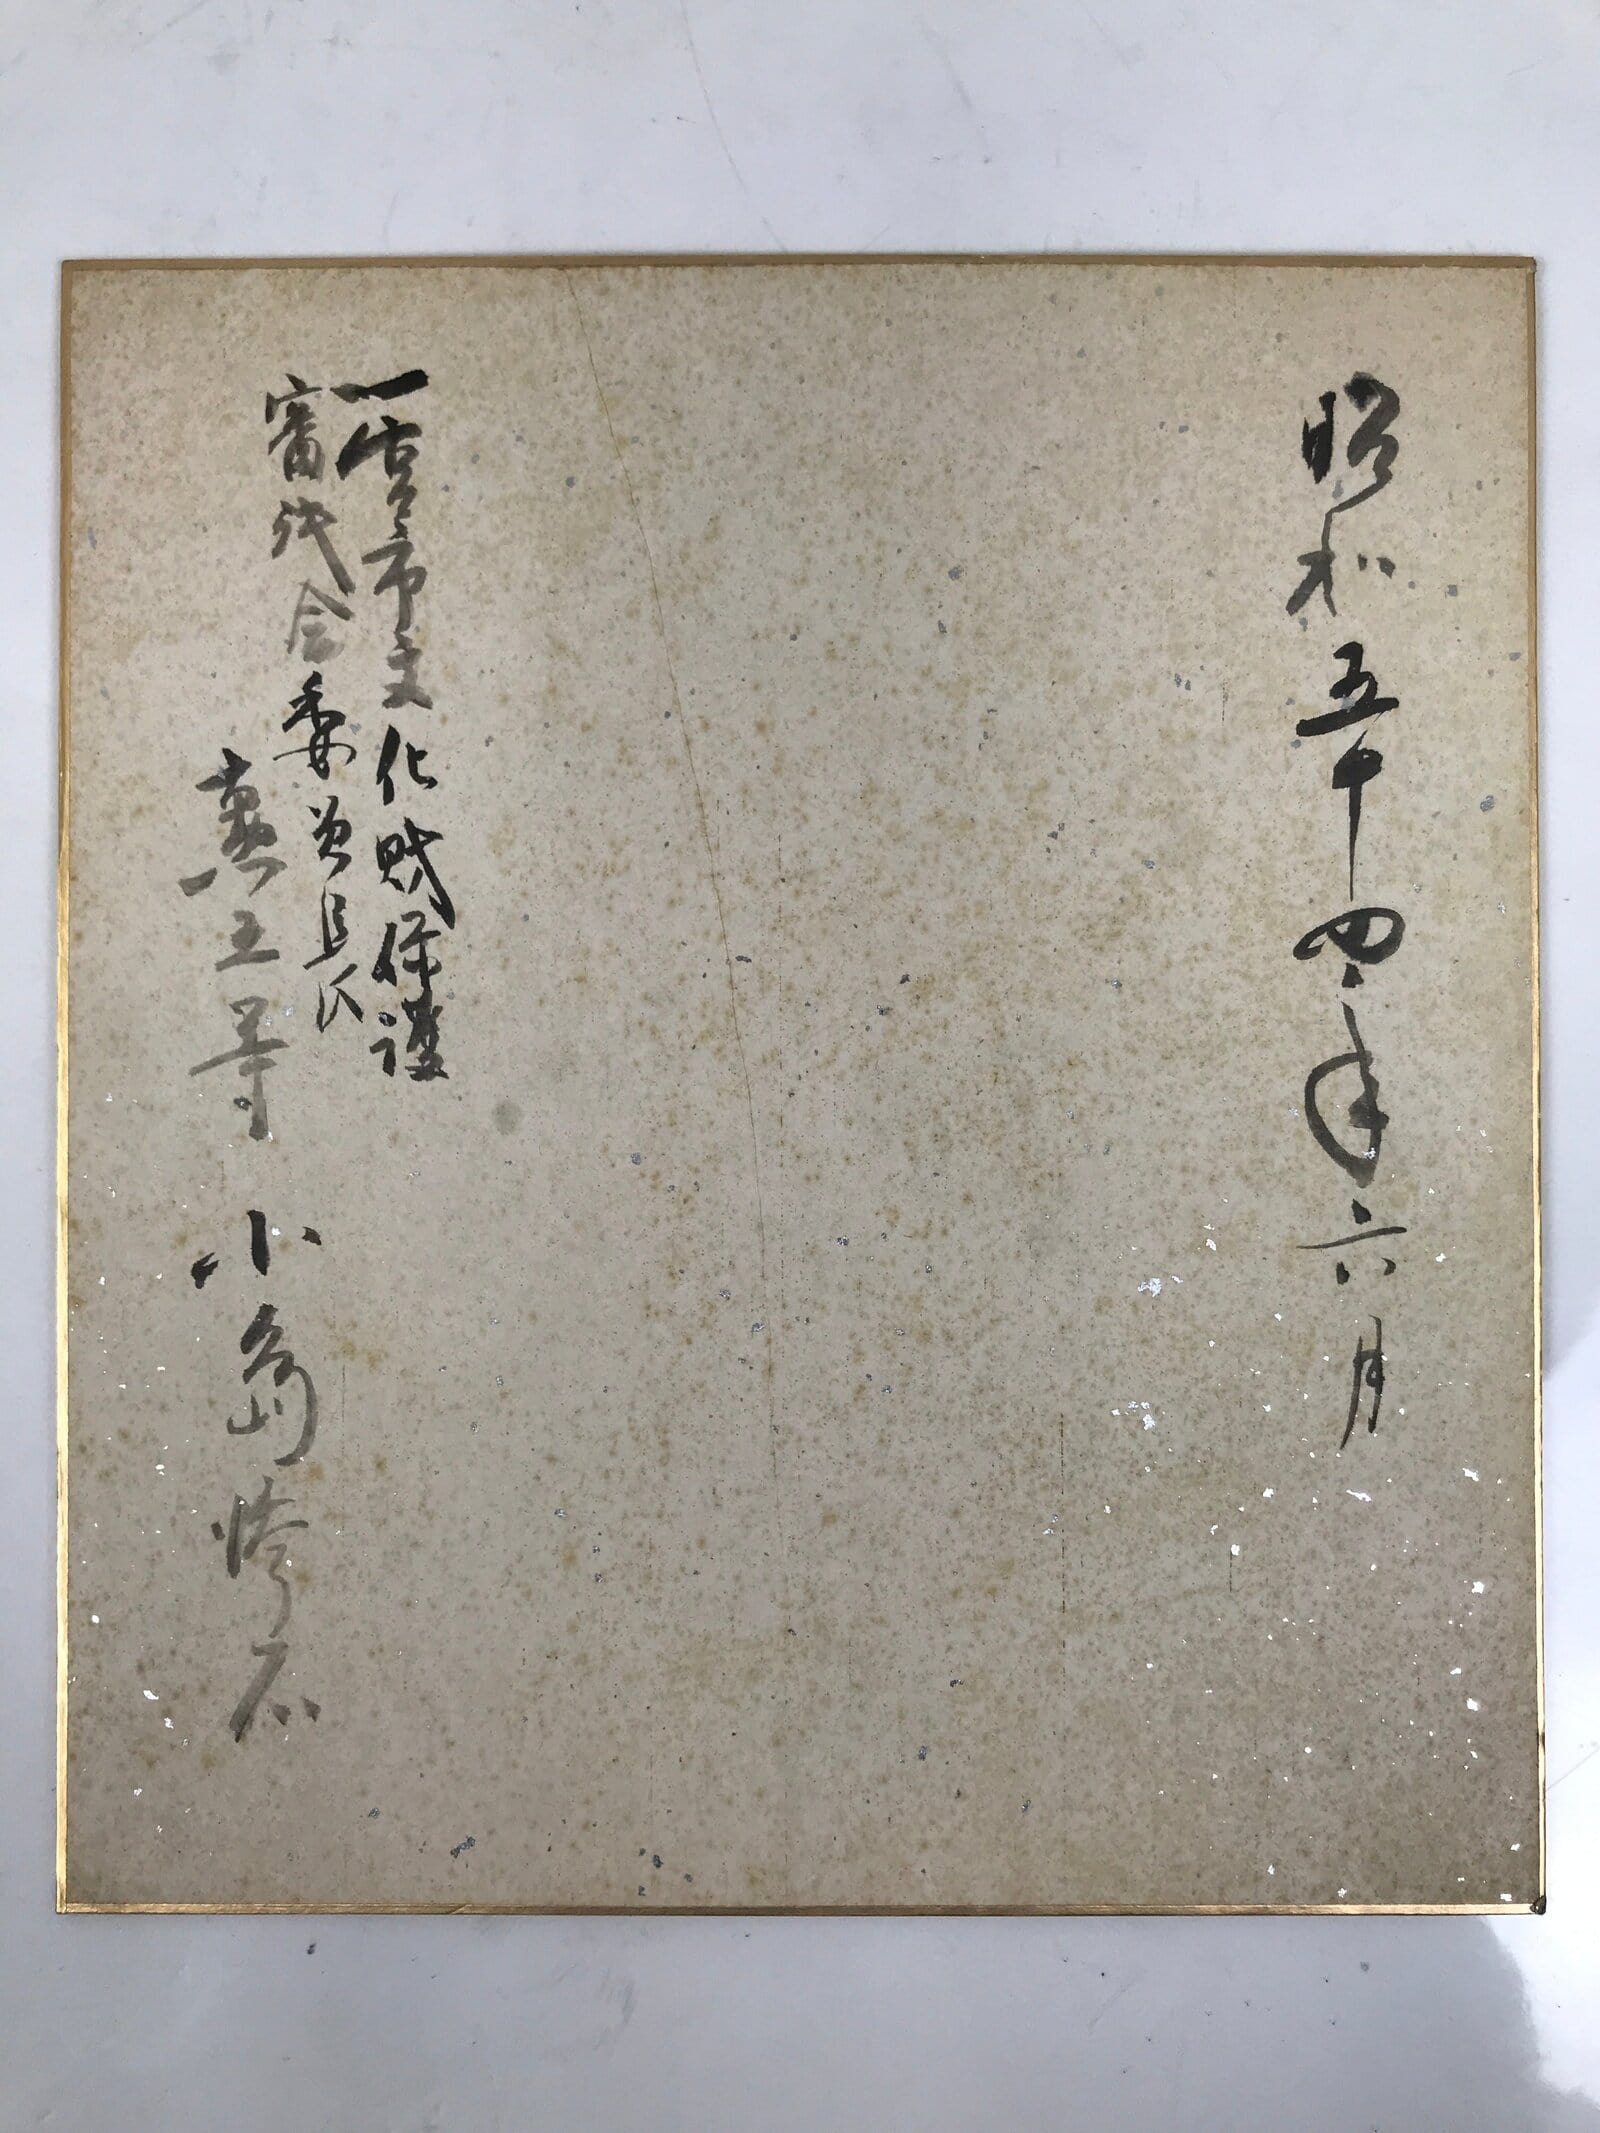 昭和五十四年六月
一宮市文化財保護
審議会委員長
勲五等 小島